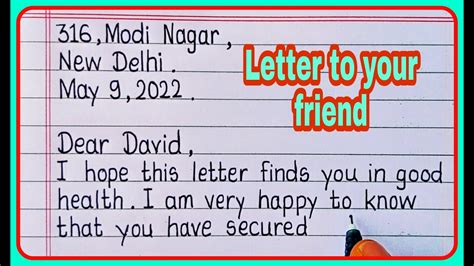 316, Modi Nagar,
New Delhi.
May 9, 2022.
Letter to your
friend
Dear David,
I hope this letter finds you in good
health. I am very happy to know
that you have secured